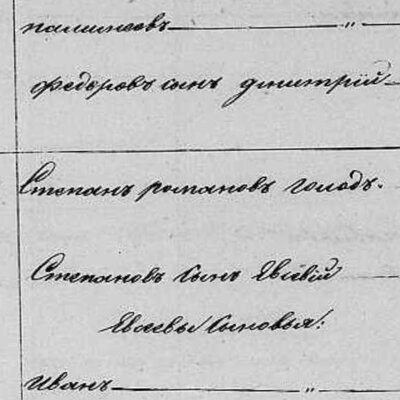 палинеевъ — „
Федоровъ сынъ дмитрій
Степанъ романовъ голодъ.
Степановъ Сынъ Евсевій
Евсевы Сыновья:
Иванъ — „